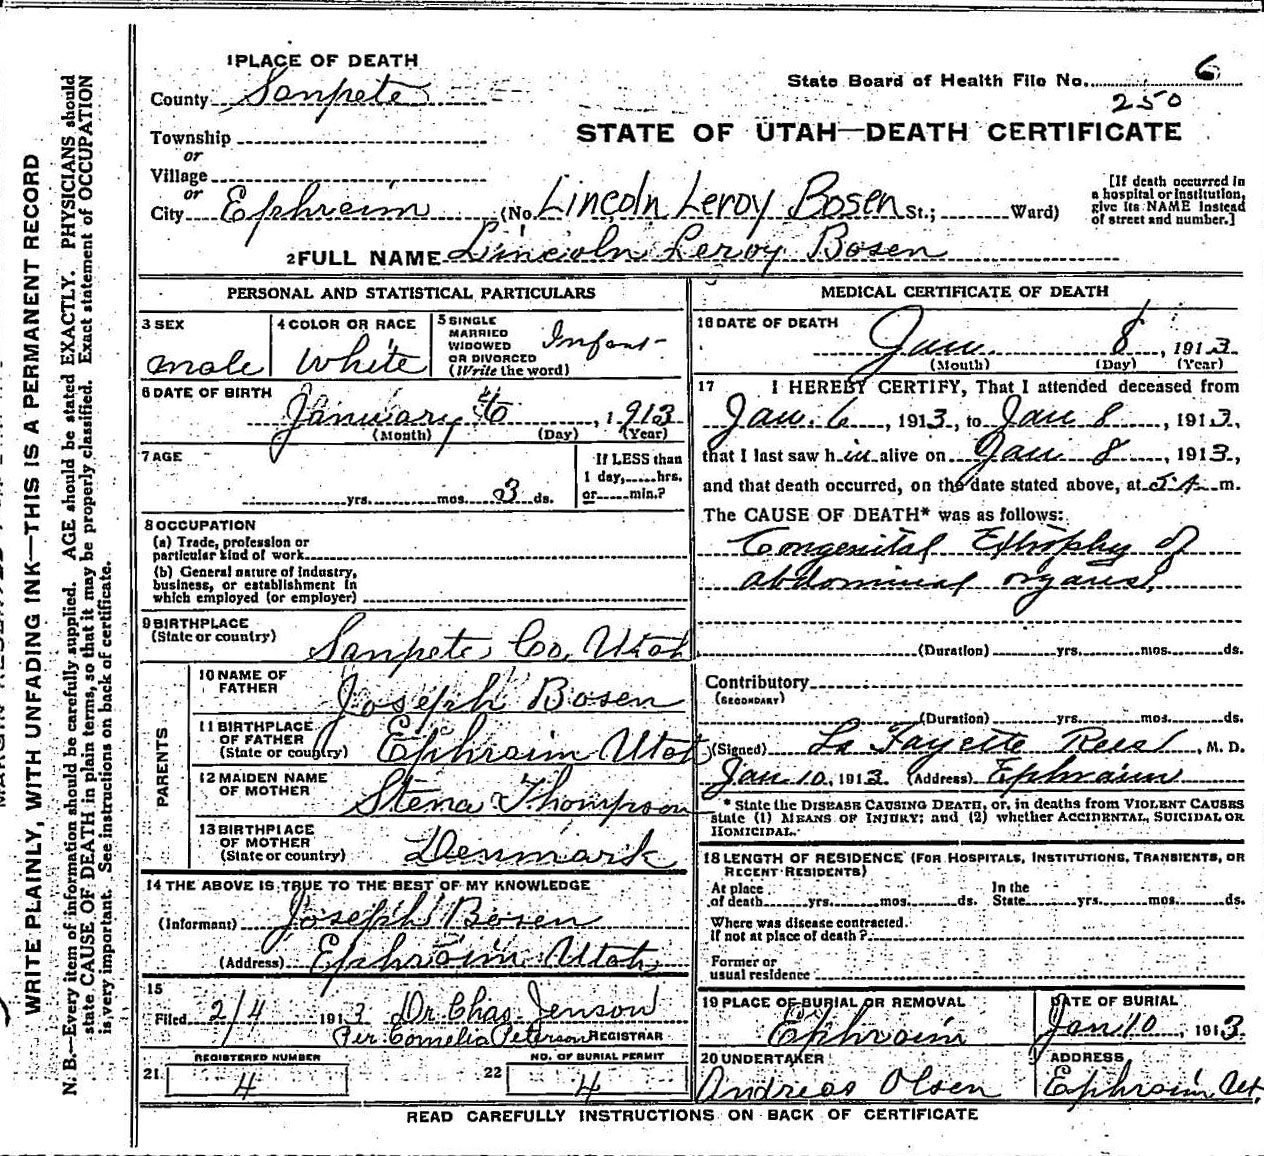 1 PLACE OF DEATH
County Sanpete
State Board of Health File No. 6
250
STATE OF UTAH—DEATH CERTIFICATE
Township
or
Village
or
City Ephraim (No. Lincoln Leroy Bosen St.; Ward)
[If death occurred in a hospital or institution, give its NAME instead of street and number.]
2 FULL NAME Lincoln Leroy Bosen
PERSONAL AND STATISTICAL PARTICULARS
3 SEX
male
4 COLOR OR RACE
White
5 SINGLE
MARRIED
WIDOWED
OR DIVORCED
(Write the word)
Infant
6 DATE OF BIRTH
January 6, 1913
(Month) (Day) (Year)
7 AGE
yrs. mos. 3 ds.
If LESS than
1 day, hrs.
or min.?
8 OCCUPATION
(a) Trade, profession or
particular kind of work
(b) General nature of industry,
business, or establishment in
which employed (or employer)
9 BIRTHPLACE
(State or country)
Sanpete Co. Utah
PARENTS
10 NAME OF
FATHER
Joseph Bosen
11 BIRTHPLACE
OF FATHER
(State or country)
Ephraim Utah
12 MAIDEN NAME
OF MOTHER
Stena Thompson
13 BIRTHPLACE
OF MOTHER
(State or country)
Denmark
14 THE ABOVE IS TRUE TO THE BEST OF MY KNOWLEDGE
(Informant) Joseph Bosen
(Address) Ephraim Utah
15
Filed 2/4 1913 Dr. Chas. Jenson
Per Cornelia Peterson REGISTRAR
REGISTERED NUMBER
21. 4
NO. OF BURIAL PERMIT
22 4
MEDICAL CERTIFICATE OF DEATH
16 DATE OF DEATH
Jan. 8, 1913
(Month) (Day) (Year)
17 I HEREBY CERTIFY, That I attended deceased from
Jan. 6, 1913, to Jan 8, 1913,
that I last saw h im alive on Jan 8, 1913,
and that death occurred, on the date stated above, at 5 A. m.
The CAUSE OF DEATH* was as follows:
Congenital Extrophy of
abdominal organs,
(Duration) yrs. mos. ds.
Contributory
(SECONDARY)
(Duration) yrs. mos. ds.
(Signed) La Fayette Rees, M. D.
Jan 10, 1913 (Address) Ephraim
* State the DISEASE CAUSING DEATH, or, in deaths from VIOLENT CAUSES
state (1) MEANS OF INJURY; and (2) whether ACCIDENTAL, SUICIDAL OR
HOMICIDAL.
18 LENGTH OF RESIDENCE (FOR HOSPITALS, INSTITUTIONS, TRANSIENTS, OR
RECENT RESIDENTS)
At place
of death yrs. mos. ds.
In the
State yrs. mos. ds.
Where was disease contracted.
If not at place of death?
Former or
usual residence
19 PLACE OF BURIAL OR REMOVAL
Ephraim
DATE OF BURIAL
Jan 10, 1913
20 UNDERTAKER
Andreas Olsen
ADDRESS
Ephraim Ut.
READ CAREFULLY INSTRUCTIONS ON BACK OF CERTIFICATE
WRITE PLAINLY, WITH UNFADING INK—THIS IS A PERMANENT RECORD
N. B.—Every item of information should be carefully supplied. AGE should be stated EXACTLY. PHYSICIANS should
state CAUSE OF DEATH in plain terms, so that it may be properly classified. Exact statement of OCCUPATION
is very important. See instructions on back of certificate.